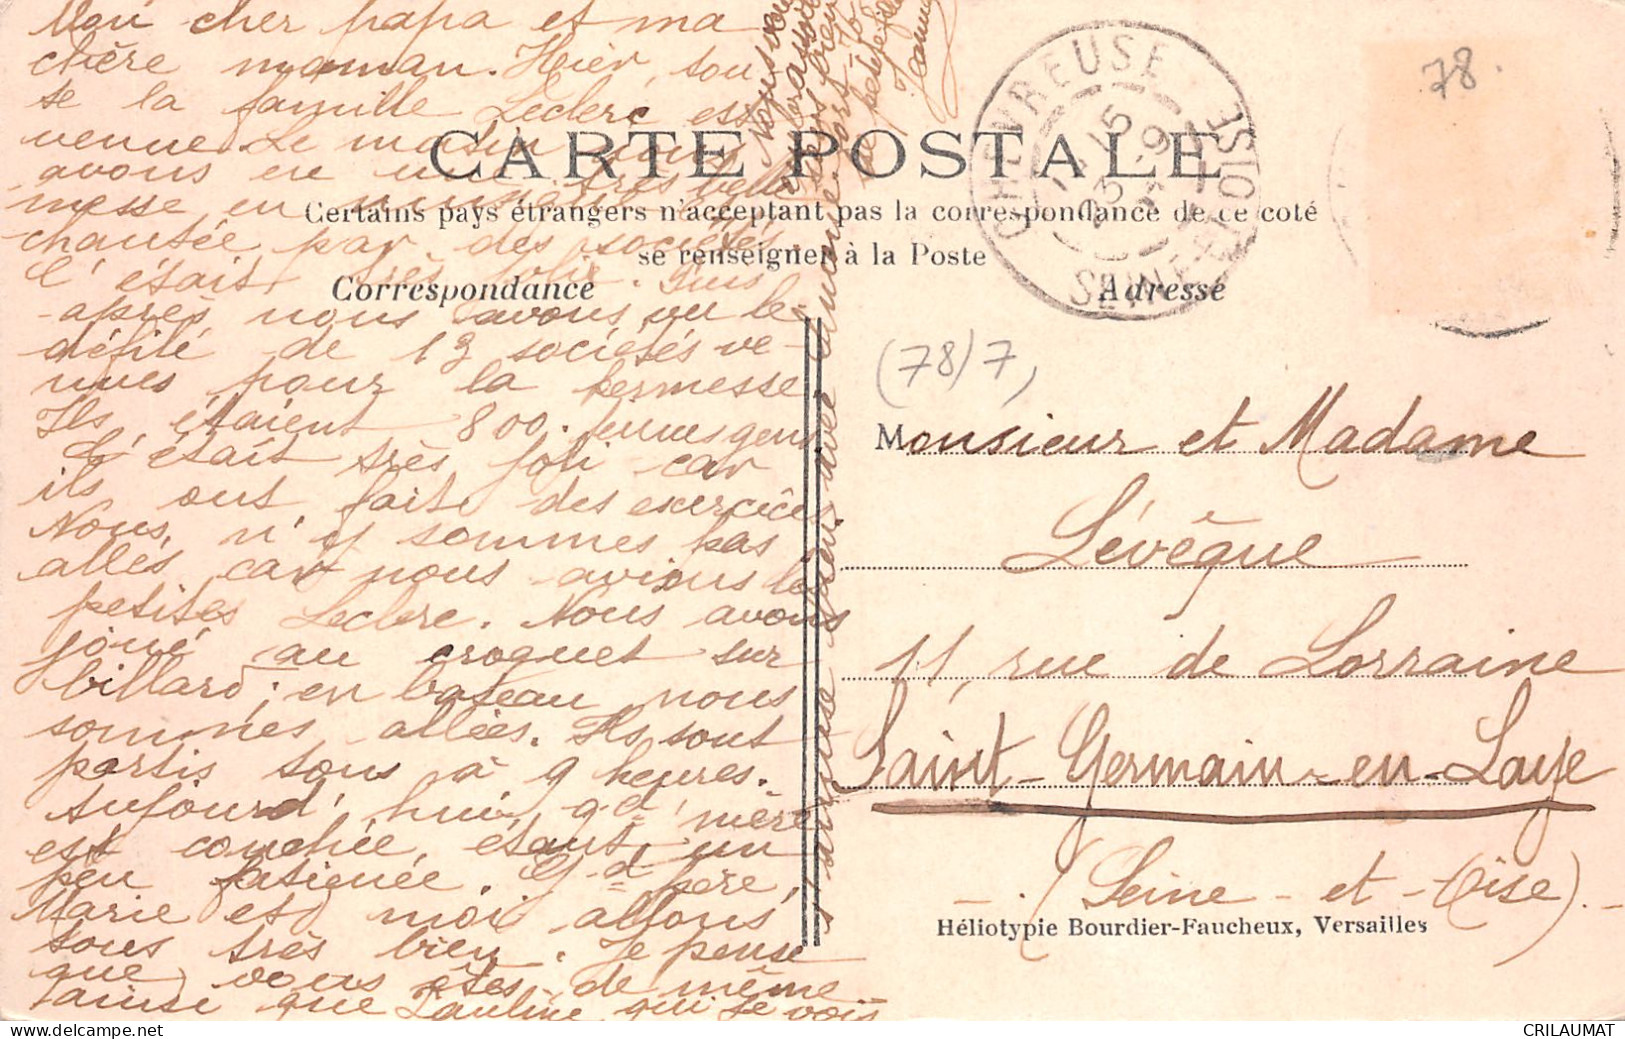 Mon cher papa et ma
chère maman. Hier, tou-
te la famille Leclerc est
venue. Le matin nous
avons eu une très belle
messe en musique
chantée par des sociétés
C'était très jolie. Puis
après nous avons vu le
défilé de 13 sociétés ve-
nues pour la kermesse.
Ils étaient 800. jeunes gens
C'était très joli car
ils ont faits des exercices
Nous, n'y sommes pas
allés car nous avions les
petites Leclerc. Nous avons
joué au croquet sur
billard; en bateau nous
sommes allées. Ils sont
partis tous à 9 heures.
Aujourd'hui gd' mère
est couchée, étant un
peu fatiguée. Gd père,
Marie et moi allons
tous très bien. Je pense
que vous êtes de même
ainsi que Pauline qui se vois
CARTE POSTALE
Certains pays étrangers n'acceptant pas la correspondance de ce coté
se renseigner à la Poste
Correspondance
Adresse
CHEVREUSE
SEINE-ET-OISE
78.
(78)7,
Monsieur et Madame
Lévêque
11, rue de Lorraine
Saint-Germain-en-Laye
(Seine-et-Oise).
Héliotypie Bourdier-Faucheux, Versailles
CRILAUMAT